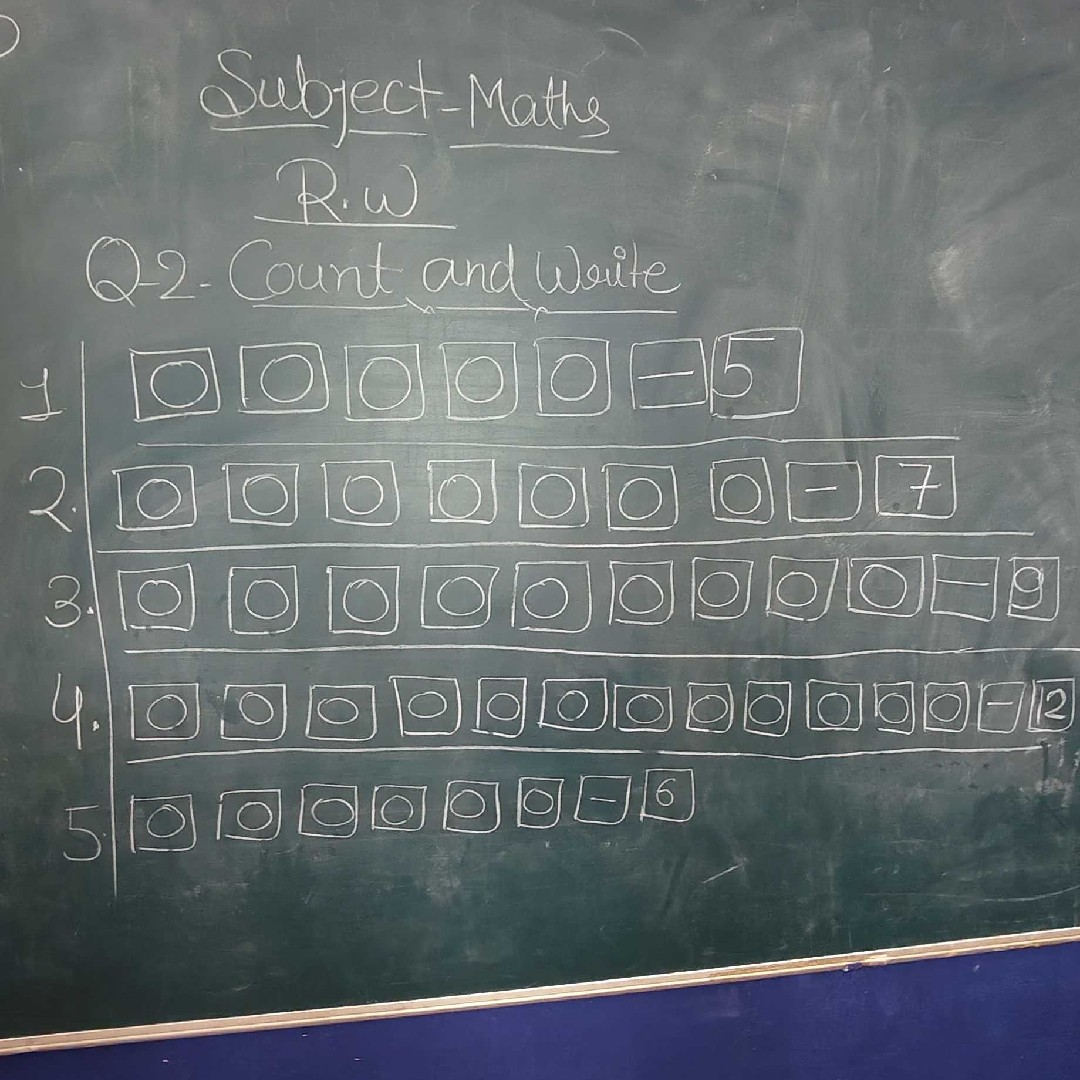 Subject-Maths
R.W
Q-2- Count and Write
1 O O O O O - 5
2. O O O O O O O - 7
3. O O O O O O O O O - 9
4. O O O O O O O O O O O O - 12
5. O O O O O O - 6